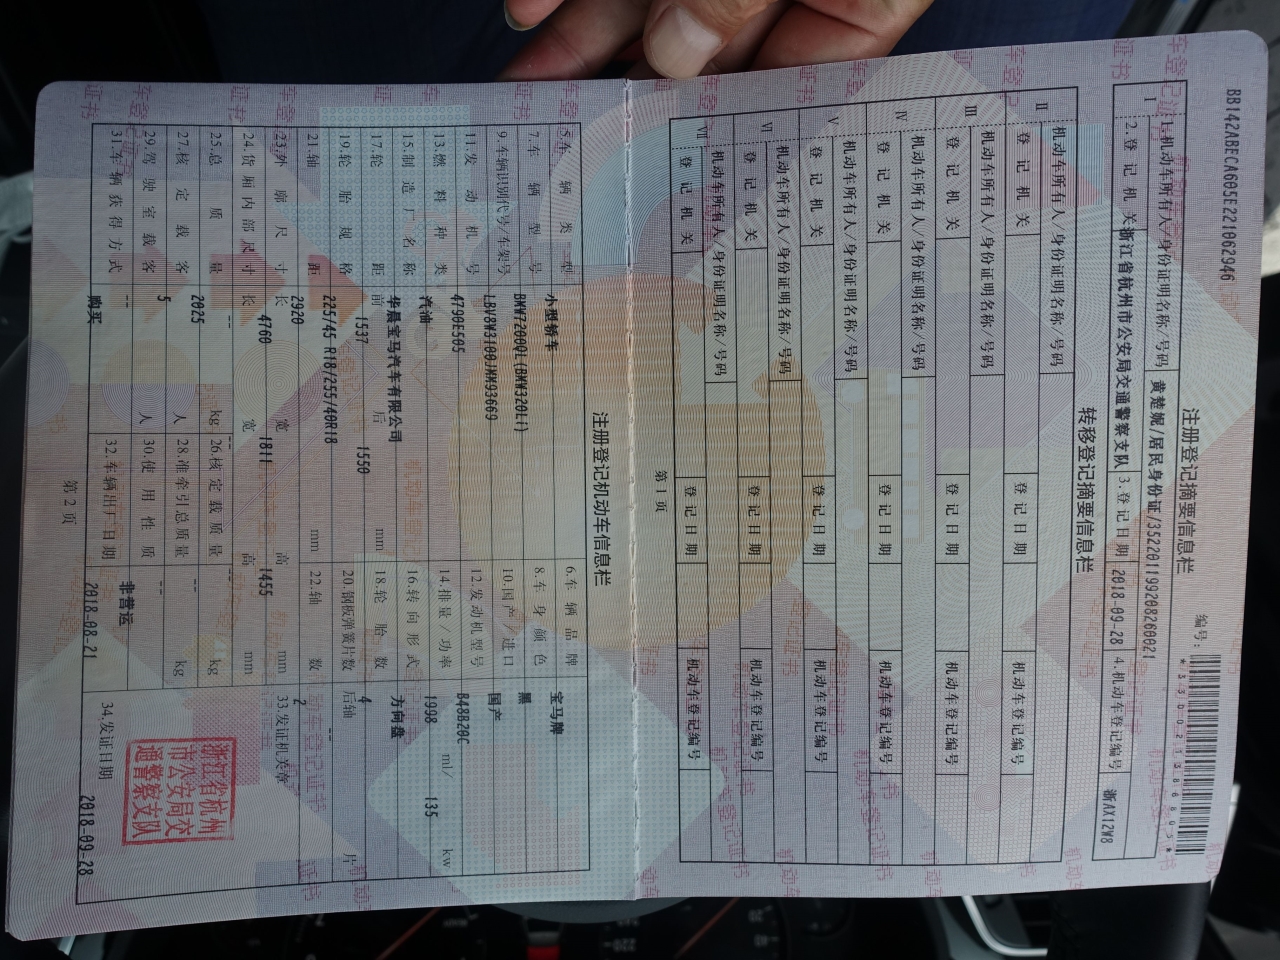 BB142ABECA605E221062946
编号:
*330021386805*
注册登记摘要信息栏
I 1.机动车所有人/身份证明名称/号码 黄楚妮/居民身份证/352201199208260021
2.登记机关 浙江省杭州市公安局交通警察支队 3.登记日期 2018-09-28 4.机动车登记编号 浙AX12W8
转移登记摘要信息栏
II 机动车所有人/身份证明名称/号码
登记机关 登记日期 机动车登记编号
III 机动车所有人/身份证明名称/号码
登记机关 登记日期 机动车登记编号
IV 机动车所有人/身份证明名称/号码
登记机关 登记日期 机动车登记编号
V 机动车所有人/身份证明名称/号码
登记机关 登记日期 机动车登记编号
VI 机动车所有人/身份证明名称/号码
登记机关 登记日期 机动车登记编号
VII 机动车所有人/身份证明名称/号码
登记机关 登记日期 机动车登记编号
第1页
注册登记机动车信息栏
5.车辆类型 小型轿车 6.车辆品牌 宝马牌
7.车辆型号 BMW7200QL(BMW320Li) 8.车身颜色 黑
9.车辆识别代号/车架号 LBV8W3100JMM93669 10.国产/进口 国产
11.发动机号 4790E505 12.发动机型号 B48B20C
13.燃料种类 汽油 14.排量/功率 1998 ml/ 135 kw
15.制造厂名称 华晨宝马汽车有限公司 16.转向形式 方向盘
17.轮距 前 1537 后 1550 mm 18.轮胎数 4
19.轮胎规格 225/45 R18/255/40R18 20.钢板弹簧片数 后轴 -- 片
21.轴距 2920 mm 22.轴数 2
23.外廓尺寸 长 4760 宽 1811 高 1455 mm 33.发证机关章
24.货厢内部尺寸 长 -- 宽 -- 高 -- mm
25.总质量 2025 kg 26.核定载质量 -- kg
27.核定载客 5 人 28.准牵引总质量 -- kg
29.驾驶室载客 -- 人 30.使用性质 非营运
31.车辆获得方式 购买 32.车辆出厂日期 2018-08-21 34.发证日期 2018-09-28
浙江省杭州
市公安局交
通警察支队
第2页